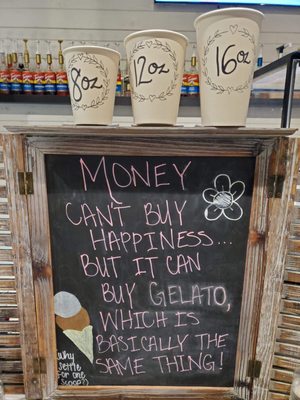 8oz
12oz
16oz
MONEY
CAN'T BUY
HAPPINESS...
BUT IT CAN
BUY GELATO,
WHICH IS
BASICALLY THE
SAME THING!
Why
settle
for one
scoop?